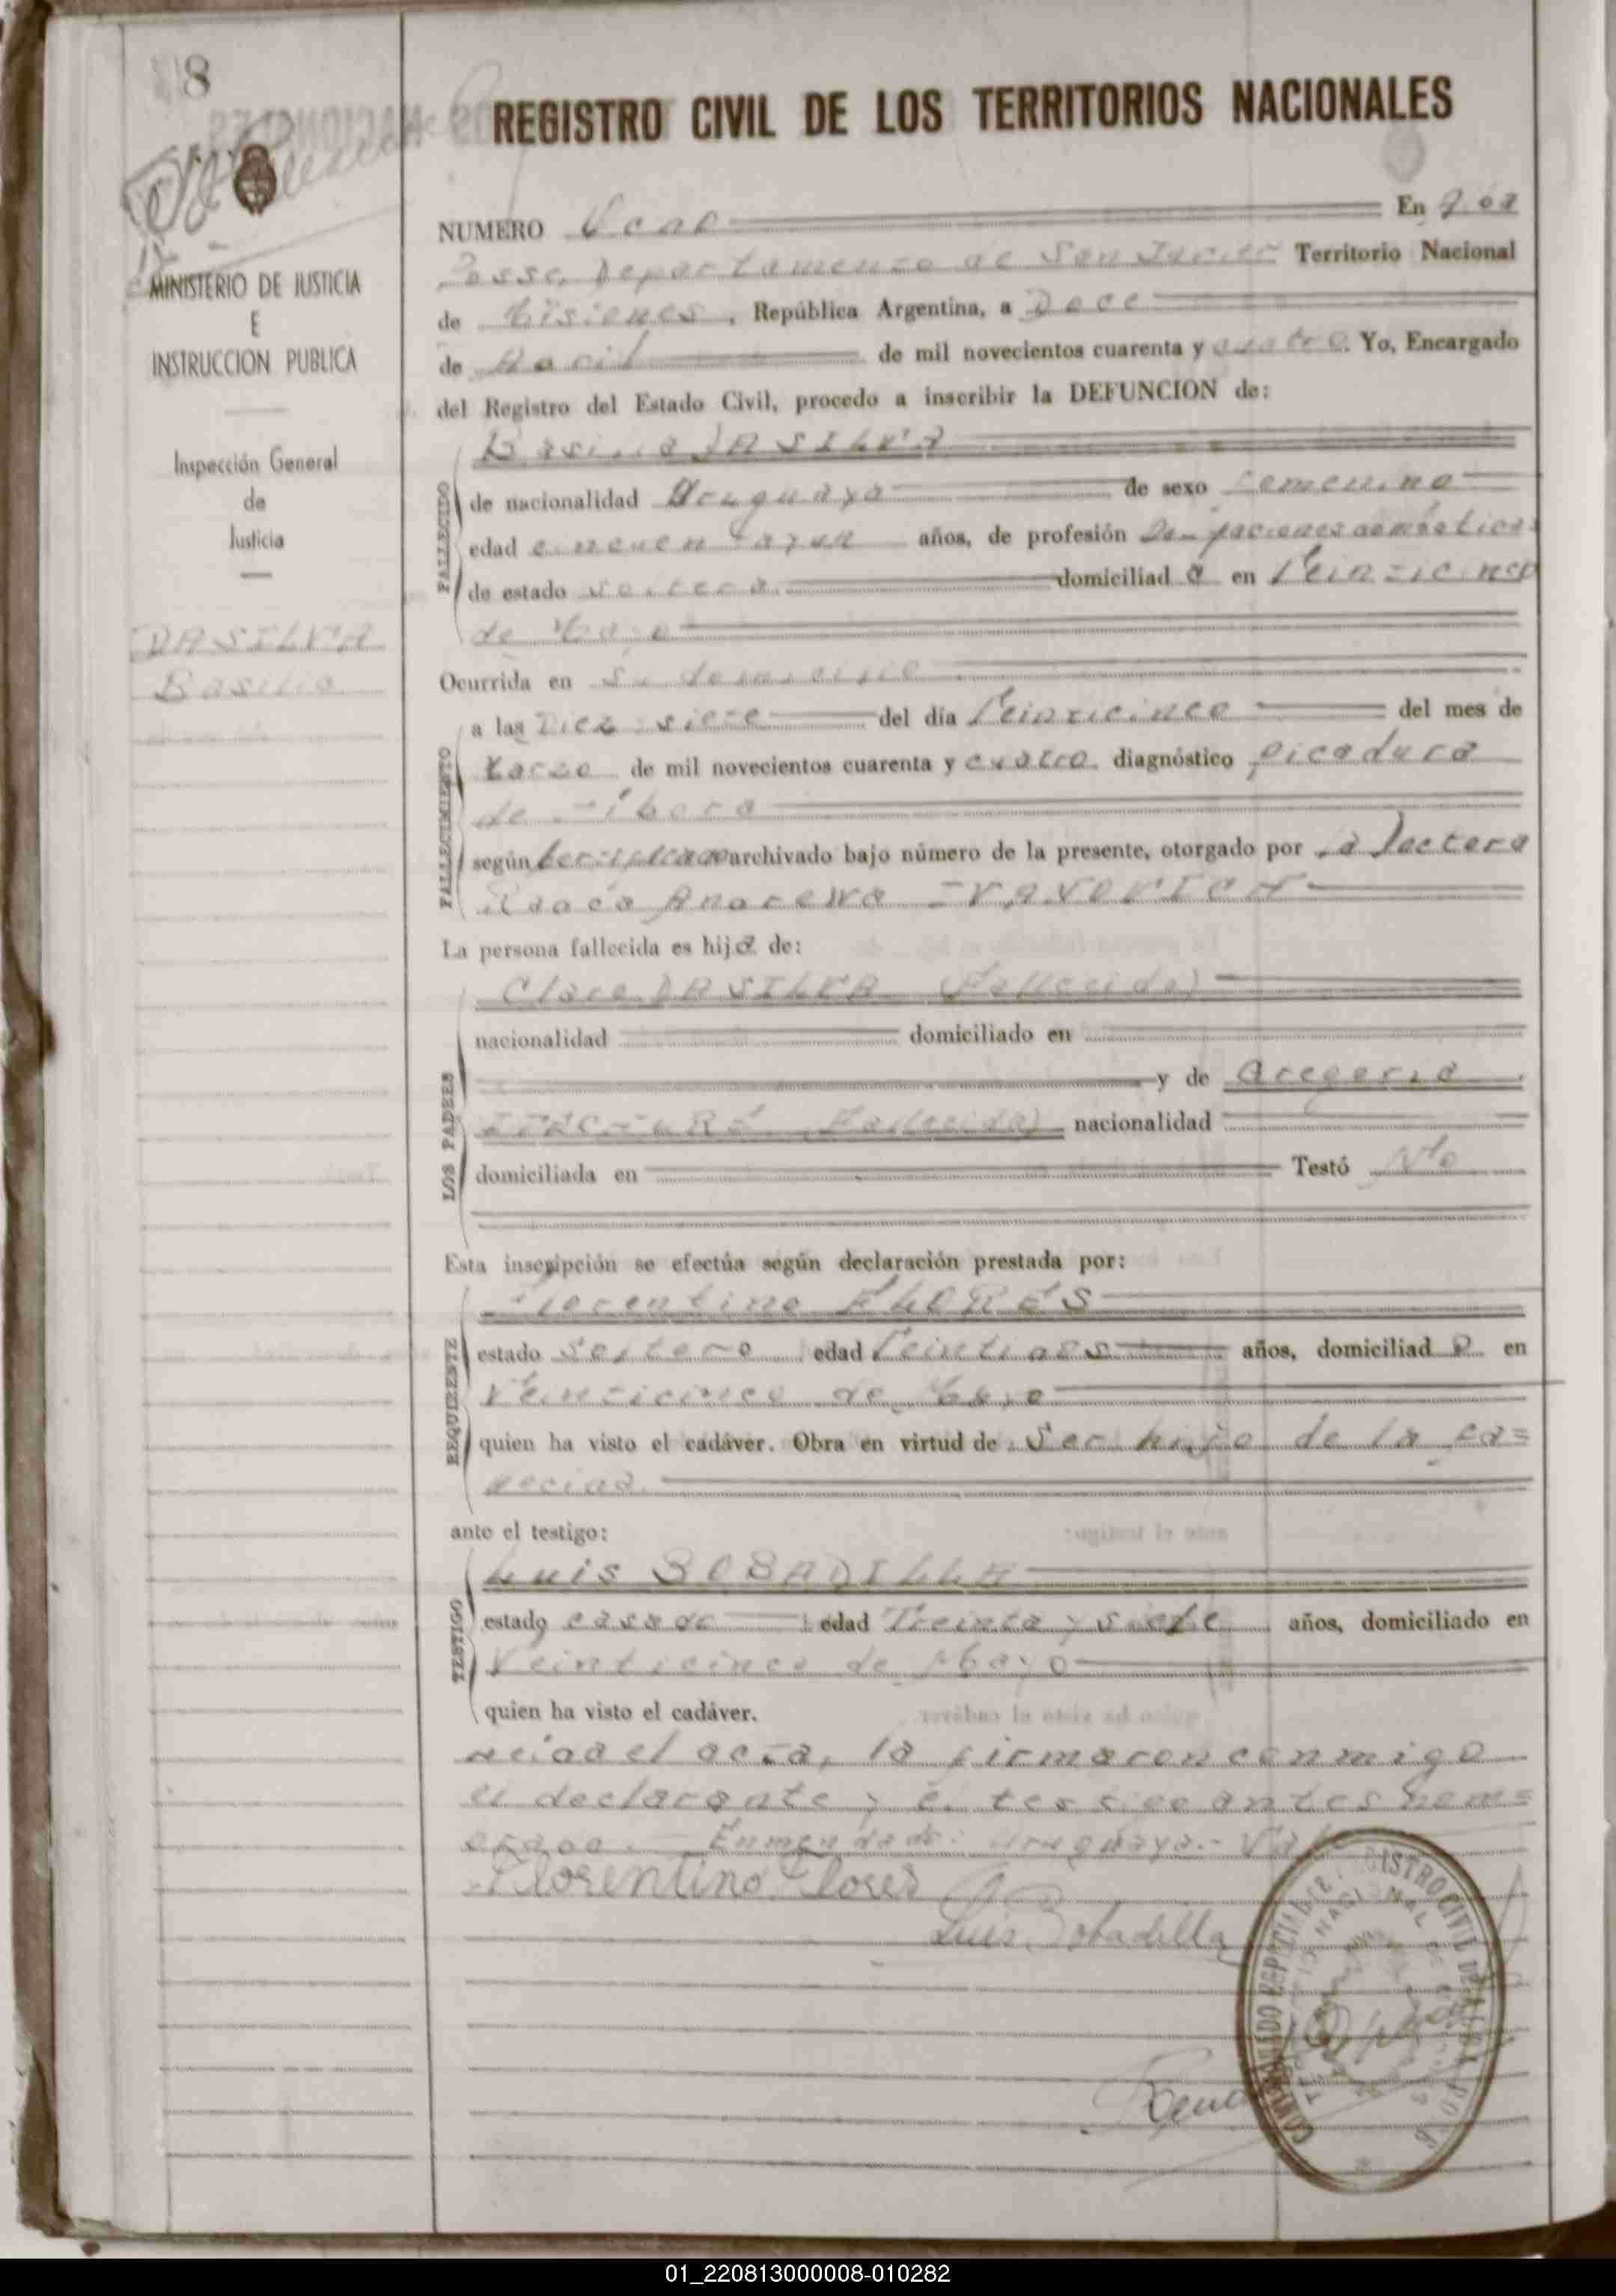 8
REGISTRO CIVIL DE LOS TERRITORIOS NACIONALES
MINISTERIO DE JUSTICIA
E
INSTRUCCION PUBLICA
Inspección General
de
Justicia
DASILVA
Basilia
NUMERO Ocho En
Posse, Departamento de San Javier Territorio Nacional
de Misiones, República Argentina, a Doce
de Abril de mil novecientos cuarenta y cuatro. Yo, Encargado
del Registro del Estado Civil, procedo a inscribir la DEFUNCION de:
Basilia DASILVA
FALLECIDO
de nacionalidad Uruguaya de sexo Femenino
edad años, de profesión domésticas
de estado soltera domiciliad a en Veinticinco
de Mayo
Ocurrida en Su domicilio
FALLECIMIENTO
a las Diez siete del día Veinticinco del mes de
Marzo de mil novecientos cuarenta y cuatro. diagnóstico picadura
de víbora
según certificado archivado bajo número de la presente, otorgado por La Doctora
La persona fallecida es hija de:
LOS PADRES
DASILVA (Fallecido)
nacionalidad domiciliado en
y de Gregoria
(Fallecida) nacionalidad
domiciliada en Testó No
Esta inscripción se efectúa según declaración prestada por:
REQUIRENTE
Florentino FLORES
estado Soltero edad Veintidos años, domiciliad o en
Veinticinco de Mayo
quien ha visto el cadáver. Obra en virtud de Ser hijo de la
ante el testigo:
TESTIGO
Luis BOBADILLA
estado casado edad Treinta y siete años, domiciliado en
Veinticinco de Mayo
quien ha visto el cadáver.
Leída el acta, la firmaron conmigo
el declarante y el testigo antes nom=
brado. Enmendado: uruguaya.- Vale
Florentino Flores
Luis Bobadilla
REGISTRO CIVIL
01_220813000008-010282